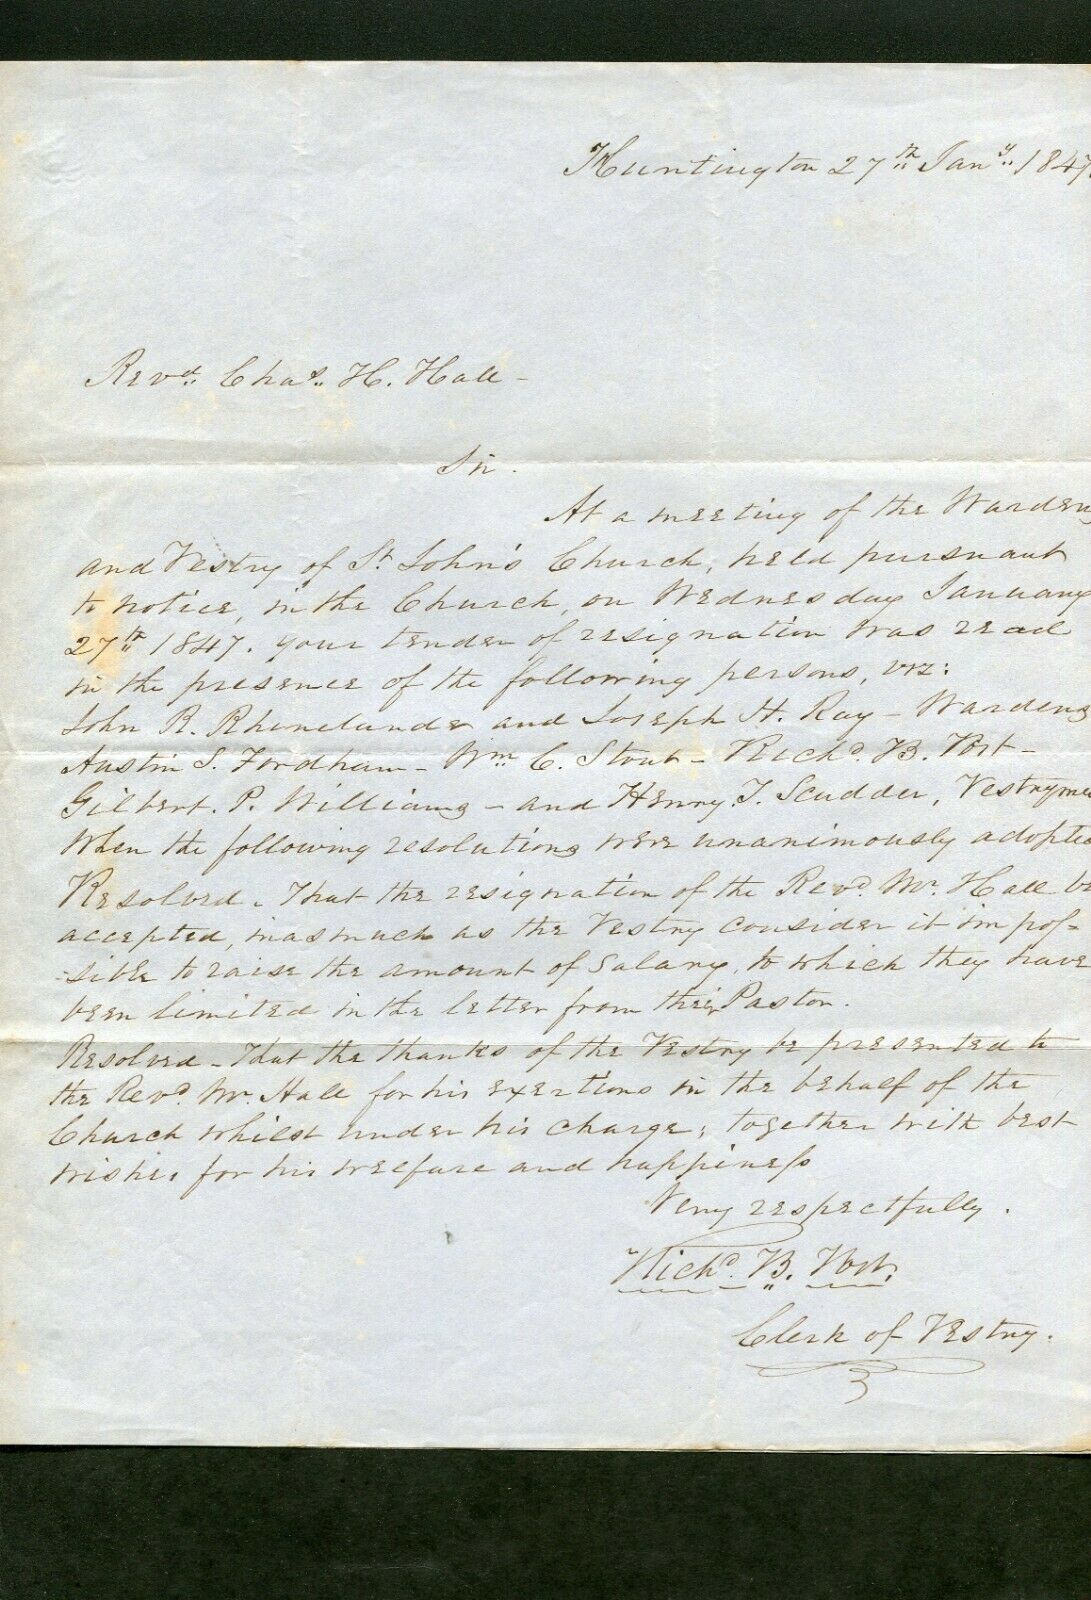 Huntington 27th Jany 1847.
Revd. Chas. H. Hall -
Sir.
At a meeting of the Wardens
and Vestry of St. John's Church, held pursuant
to notice, in the Church, on Wednesday January
27th 1847. your tender of resignation was read
in the presence of the following persons, viz:
John R. Rhinelander and Joseph H. Ray - Wardens
Austin S. Fordham - Wm. C. Stout - Richd. B. Post -
Gilbert. P. Williams - and Henry. J. Scudder, Vestrymen
When the following resolutions were unanimously adopted
Resolved - That the resignation of the Revd. Mr. Hall be
accepted, inasmuch as the Vestry consider it impos-
-sible to raise the amount of Salary, to which they have
been limited in the letter from their Pastor.
Resolved - That the thanks of the Vestry be presented to
the Revd. Mr. Hall for his exertions in the behalf of the
Church whilst under his charge; together with best
wishes for his welfare and happiness
Very respectfully.
Richd. B. Post.
Clerk of Vestry.